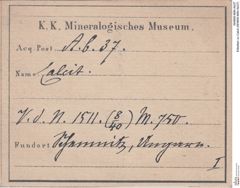 K.K. Mineralogisches Museum.
Acq. Post A.b.37.
Name Calcit.
V.d.N. 1511. (8/40) M. 750.
Fundort Schemnitz, Ungarn.
I